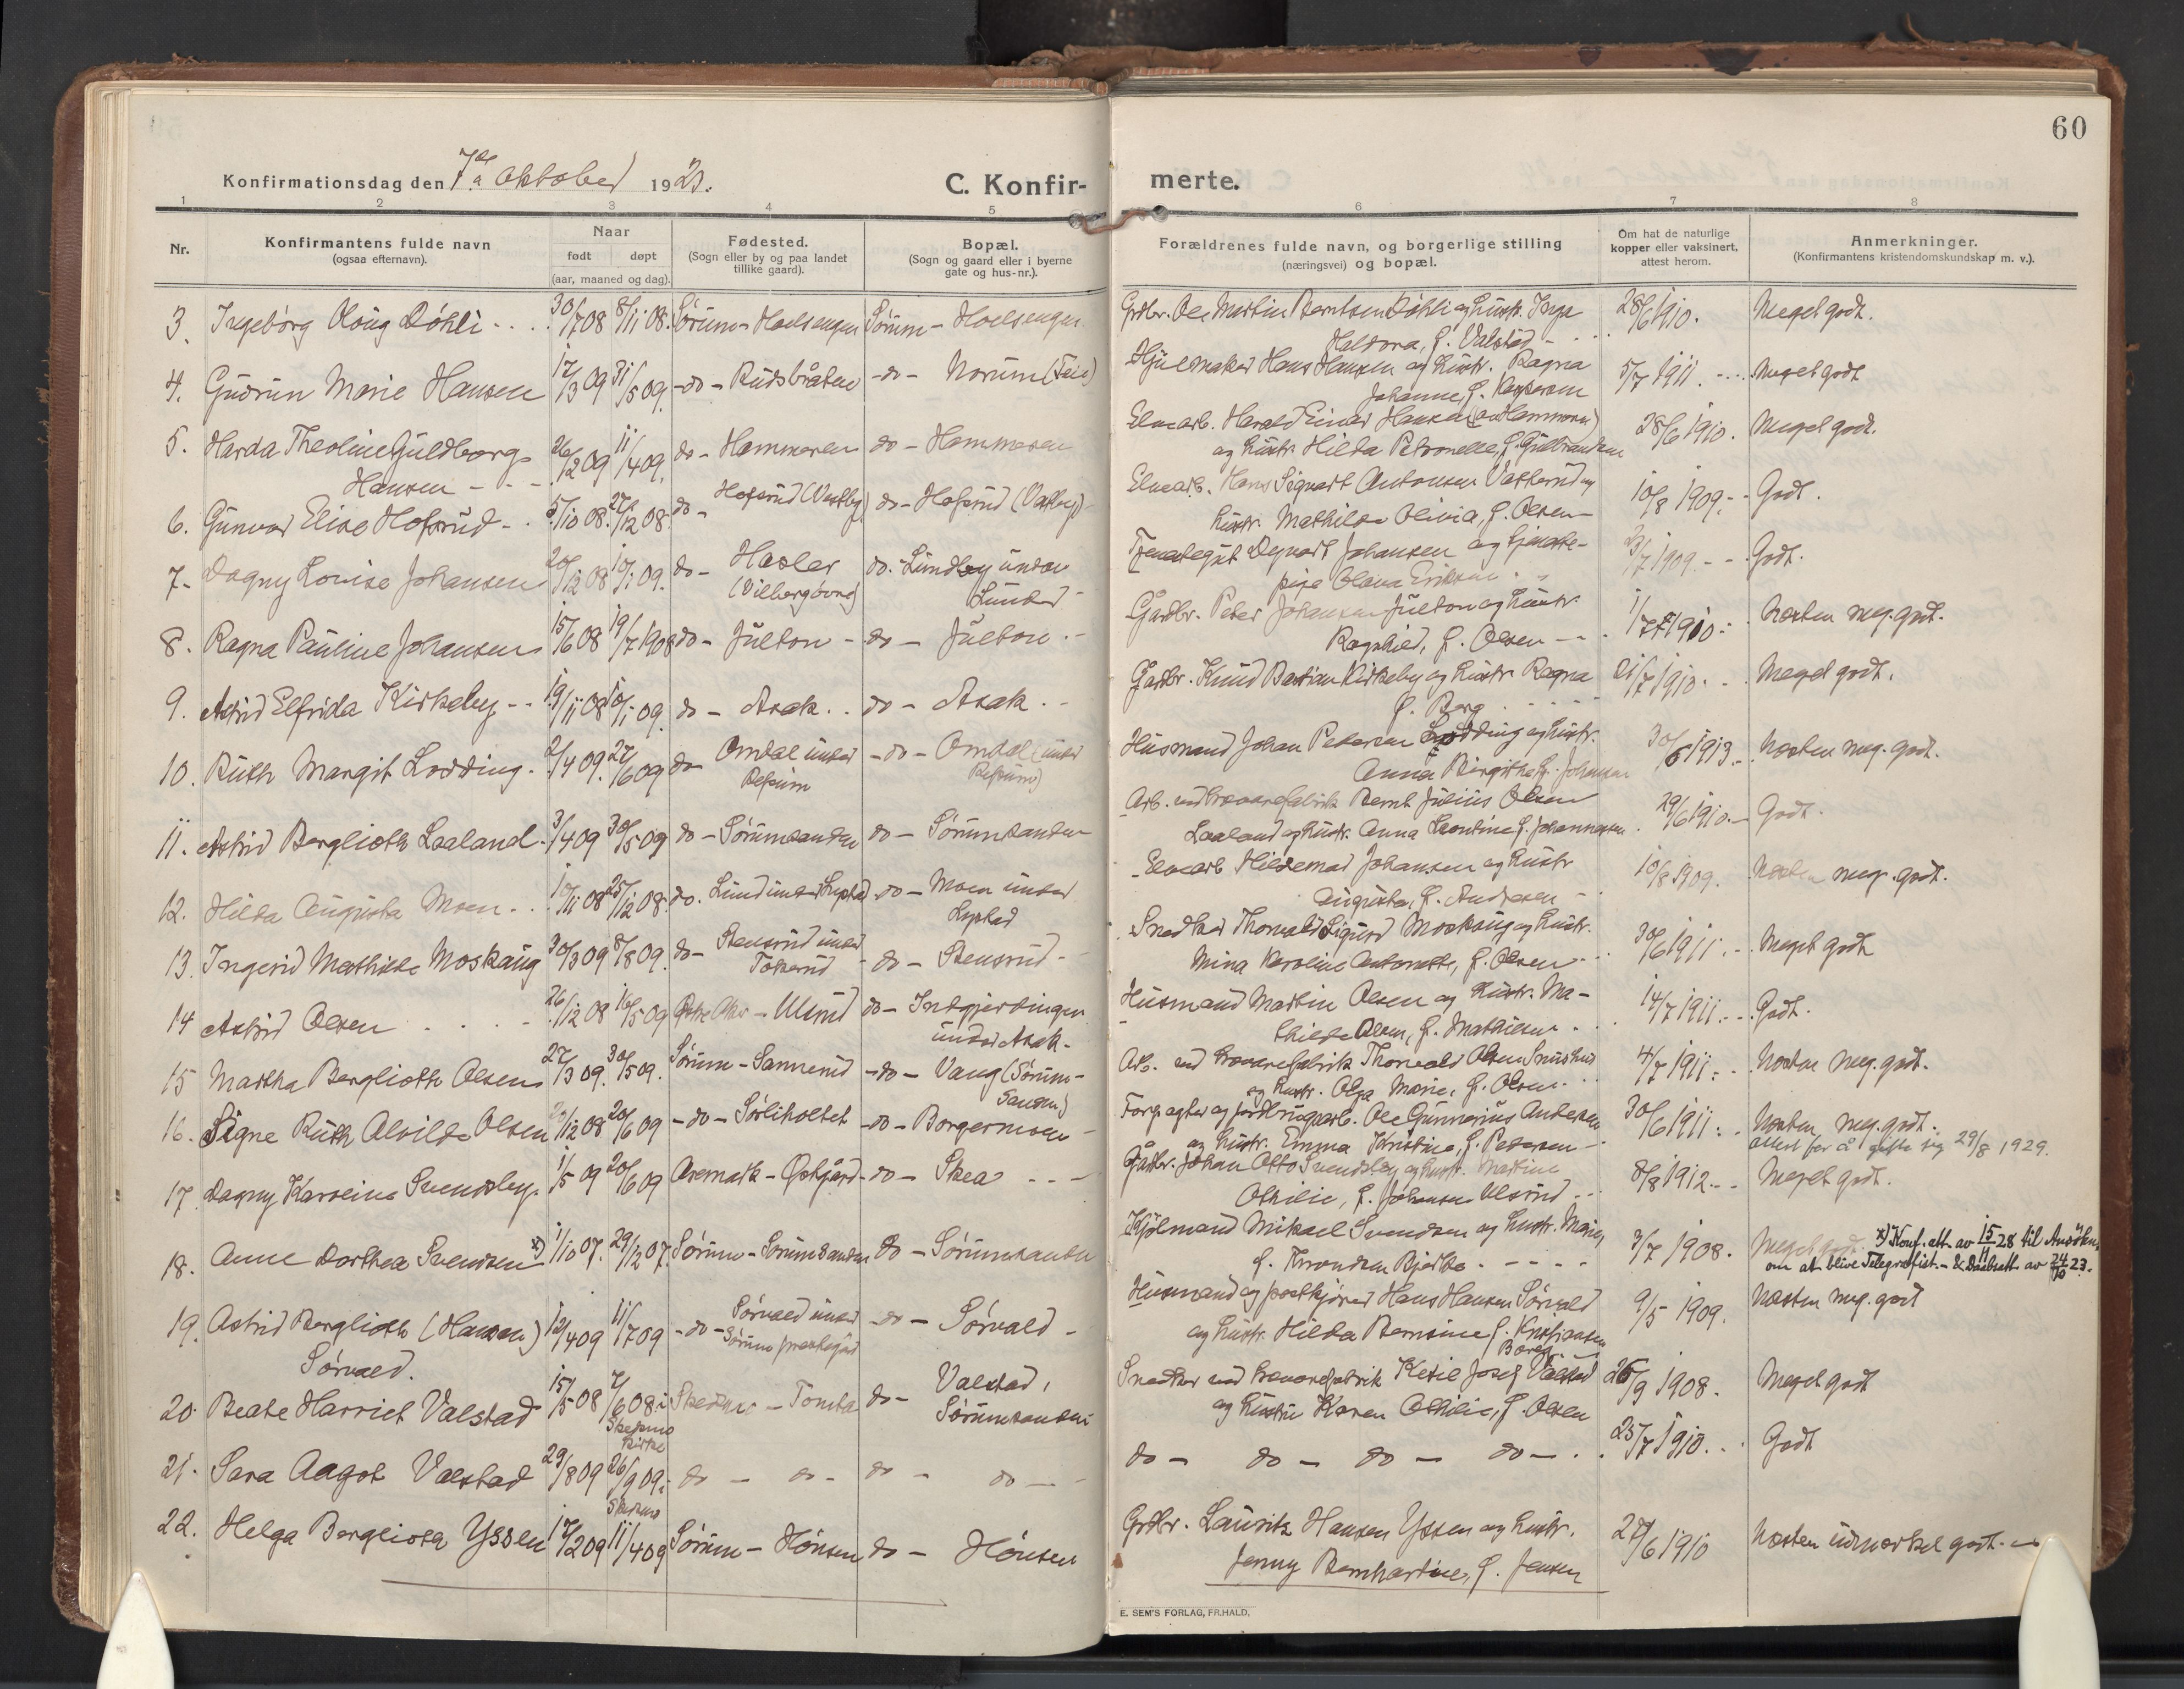 60
Konfirmationsdag den 7de oktober 1923.
C. Konfirmerte.
1 2 3 4 5 6 7 8
Nr.
Konfirmantens fulde navn
(ogsaa efternavn).
Naar
født døpt
(aar, maaned og dag).
Fødested.
(Sogn eller by og paa landet
tillike gaard).
Bopæl.
(Sogn og gaard eller i byerne
gate og hus-nr.).
Forældrenes fulde navn, og borgerlige stilling
(næringsvei) og bopæl.
Om hat de naturlige
kopper eller vaksinert,
attest herom.
Anmerkninger.
(Konfirmantens kristendomskundskap m. v.).
3. Ingeborg Haug Døhli 30/7 08 8/11 08. Sørum - Holsengen Sørum - Holsengen Grdbr. Ole Martin Berntsen Døhli og hustr. Inga 28/6 1910. Meget godt.
Haldora, f. Valstad
4. Gudrun Marie Hansen 17/3 09 31/5 09. -do- Rudsbråten -do- Norum (Feie) Hjulmaker Hans Hansen og hustr. Ragna 5/7 1911. Meget godt
Johanne, f. Kaspersen
5. Harda Theoline Guldborg 26/2 09 11/4 09. do - Hammeren do - Hammeren Elvearb. Harald Einar Hansen (av Hammeren) 28/6 1910. Meget godt.
Hansen
og hustr. Hilda Petronella, f. Gulbrandsen
6. Gunvor Elise Hofsrud 5/10 08. 27/12 08. do - Hofsrud (Vestby) do - Hofsrud (Vestby) Elvearb. Hans Sigvart Antonsen Vesterud og 10/8 1909. Godt.
hustr. Mathilde Olivia, f. Olsen
7. Dagny Lovise Johansen 20/12 08 10/1 09. do - Hasler do. Lundby under Tjenestegut Degvart Johansen og tjeneste- 23/7 1909. Godt.
(Vilbergøvre) Lunder pige Olava Eriksen
8. Ragna Pauline Johansen 15/6 08 19/7 1908 do - Julton - do - Julton Gardbr. Peter Johansen Julton og hustr. 1/7 1910. Næsten meg. godt.
Ragnhild, f. Olsen
9. Astrid Elfrida Kirkeby 19/11 08 10/1 09. do - Asak do - Asak Gardbr. Knud Bastian Kirkeby og hustr. Ragna 21/7 1910. Meget godt.
f. Berg
10. Ruth Margit Lodding 2/4 09. 27/6 09 do Omdal under -do- Omdal (under Husmand Johan Petersen Lodding og hustr. 30/6 1913. Næsten meg. godt.
Refsum Refsum) Anna Birgithe f. Johansen
11. Astrid Berglioth Laaland 3/4 09 30/5 09 do - Sørumsanden do - Sørumsanden Arb. ved trævarefabrik Bernt Julius Olsen 29/6 1910. Godt.
Laaland og hustr. Anna Leontine f. Johannessen
12. Hilda Augusta Moen 10/11 08 25/12 08. do. Lund under Lystad do - Moen under Elvearb Hildemar Johansen og hustr 10/8 1909. Næsten meg. godt.
Lystad Augusta, f. Andresen
13. Ingerid Mathilde Moskaug 30/3 09 8/8 09. do - Stensrud under do - Stensrud Snedker Thorvald Sigurd Moskaug og hustr. 30/6 1911. Meget godt
Tokerud Mina Karoline Antonette, f. Olsen
14 Astrid Olsen 26/12 08 16/5 09 Østre Aker - Ulsrud do - Indgjerdingen Husmand Martin Olsen og hustr. Ma- 14/7 1911. Godt.
under Asak thilde Olsen, f. Mathisen
15 Martha Bergliotte Olsen 27/3 09. 30/5 09. Sørum - Sannerud -do- Vang (Sørum- Arb. ved trævarefabrik Thorvald Olsen Snushus 4/7 1911. Næsten meg. godt.
sanden) og hustr. Olga Marie, f. Olsen
16. Signe Ruth Alvilde Olsen 20/12 08 20/6 09 -do- Sørliholtet -do- Borgermoen Forpagter og jordbruksarb. Ole Gunnerius Andersen 30/6 1911. Næsten meg. godt.
og hustr. Emma Kristine, f. Petersen attest for å gifte sig 29/8 1929.
17. Dagny Karoline Svendsby 1/5 09 20/6 09 Aremark - Østgård -do- Skea Gardbr. Johan Otto Svendsby og hustr. Martine 8/8 1912. Meget godt.
Othilie, f. Johansen Ulsrud
18. Anne Dorthea Svendsen x) 1/10 07. 29/12 07. Sørum - Sørumsanden do - Sørumsanden Kjølmand Mikael Svendsen og hustr. Maren 3/7 1908. Meget godt. x) Konf. att. av 15/11 28 til Ansökn.
f. Amundsen Bjerke om at blive Telegrafist. - & Dåbsatt av 24/10 23.
19. Astrid Bergliotte (Hansen) 12/4 09 11/7 09 -do- Sørvald under -do- Sørvald Husmand og postkjører Hans Hansen Sørvald 9/5 1909. Næsten meg. godt
Sørvald. Sørum prestegård og hustr. Hilda Bernsine f. Kristiansen
Borg
20. Beate Harriet Valstad 15/5 08 7/6 08 i Skedsmo - Tomta do - Valstad, Snedker ved trævarefabrik Ketil Josef Valstad 26/9 1908. Meget godt
Skedsmo kirke Sørumsanden og hustru Karen Othilie, f. Olsen
21. Sara Aagot Valstad 29/8 09 26/9 09 i do - do - do - do - do - do - do - do - 25/7 1910. Godt
Skedsmo
22. Helga Bergliota Yssen 17/2 09 11/4 09 Sørum - Hønsen do - Hønsen Grdbr. Lauritz Hansen Yssen og hustr. 27/6 1910 Næsten udmerket godt.
Jenny Bernhartine, f. Jensen
E. SEM'S FORLAG, FR.HALD,